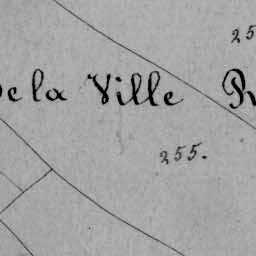 25
De la Ville
255.